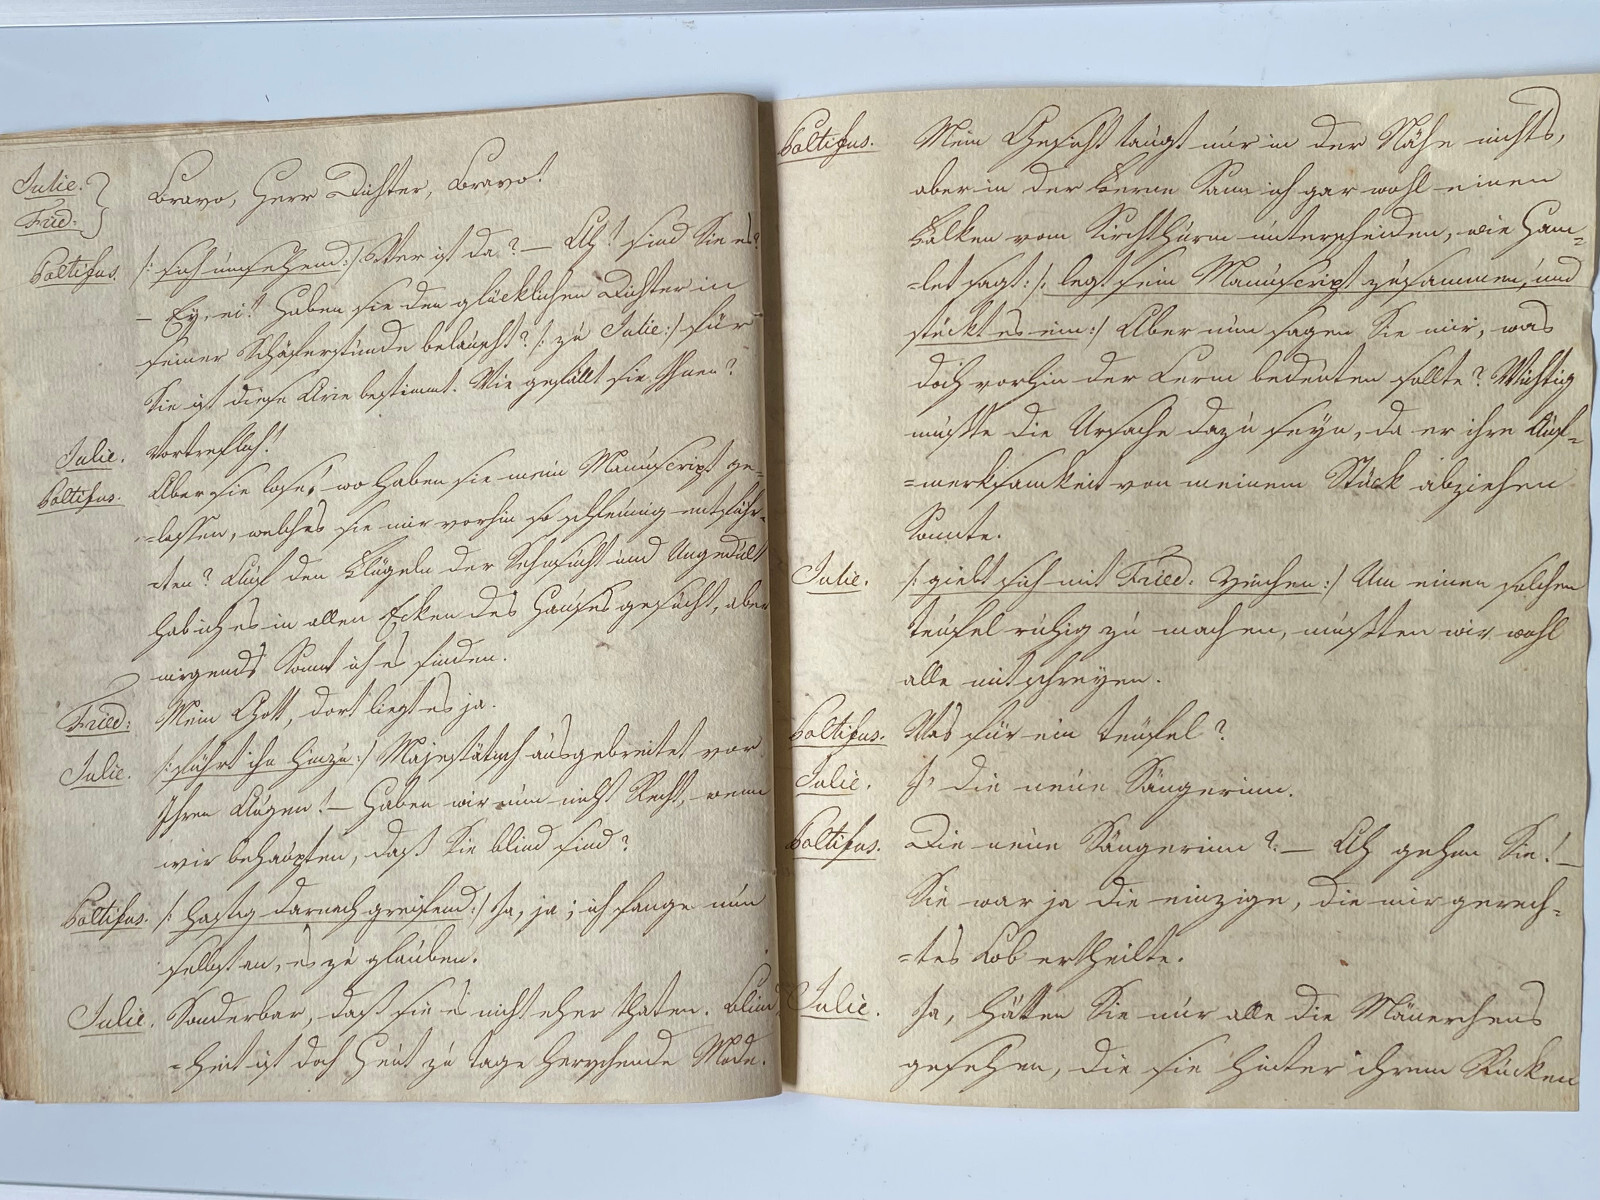 Julie.
Fried:
Bravo, Herr Dichter, Bravo!
Poltifus. /: sich umsehend :/ Wer ist da? — Ah! sind Sie es?
— Ey, ei! Haben sie den glücklichen Dichter in
seiner Schäferstunde belauscht? /: zu Julie :/ für
Sie ist diese Arie bestimmt. Wie gefällt sie Ihnen?
Julie. Vortreflich!
Poltifus. Aber sie lose, wo haben sie mein Manuscript ge-
=lassen, welches sie mir vorhin so schleunig entführ-
=ten? Auf den Flügeln der Sehnsucht und Ungedult
hab ich es in allen Ecken des Hauses gesucht, aber
nirgends konnt ich es finden.
Fried: Mein Gott, dort liegt es ja.
Julie. /: führt ihn hinzu :/ Majestätisch ausgebreitet vor
Ihren Augen! — Haben wir nun nicht Recht, wenn
wir behaupten, daß Sie blind sind?
Poltifus. /: hastig darnach greifend :/ Ja, ja; ich fange nun
selbst an, es zu glauben.
Julie. Sonderbar, daß sie es nicht eher thaten. Blind
=heit ist doch heut zu tage herrschende Mode.
Poltifus. Mein Gesicht taugt nur in der Nähe nichts,
aber in der Ferne kann ich gar wohl einen
Falken vom Kirchthurm unterscheiden, wie Ham=
=let sagt: /: legt sein Manuscript zusammen, und
steckt es ein :/ Aber nun sagen Sie mir, was
doch vorhin der Lerm bedeuten sollte? Wichtig
mußte die Ursache dazu seyn, da er ihre Auf=
=merksamkeit von meinem Stück abziehen
konnte.
Julie. /: giebt sich mit Fried: Zeichen :/ Um einen solchen
teufel ruhig zu machen, mußten wir wohl
alle mitschreyen.
Poltifus. Was für ein teufel?
Julie. I' die neue Sängerinn.
Poltifus. Die neue Sängerinn? — Ah gehen Sie! —
Sie war ja die einzige, die mir gerech=
=tes Lob ertheilte.
Julie. Ja, hätten Sie nur alle die Mäuerchens
gesehen, die sie hinter ihrem Rücken